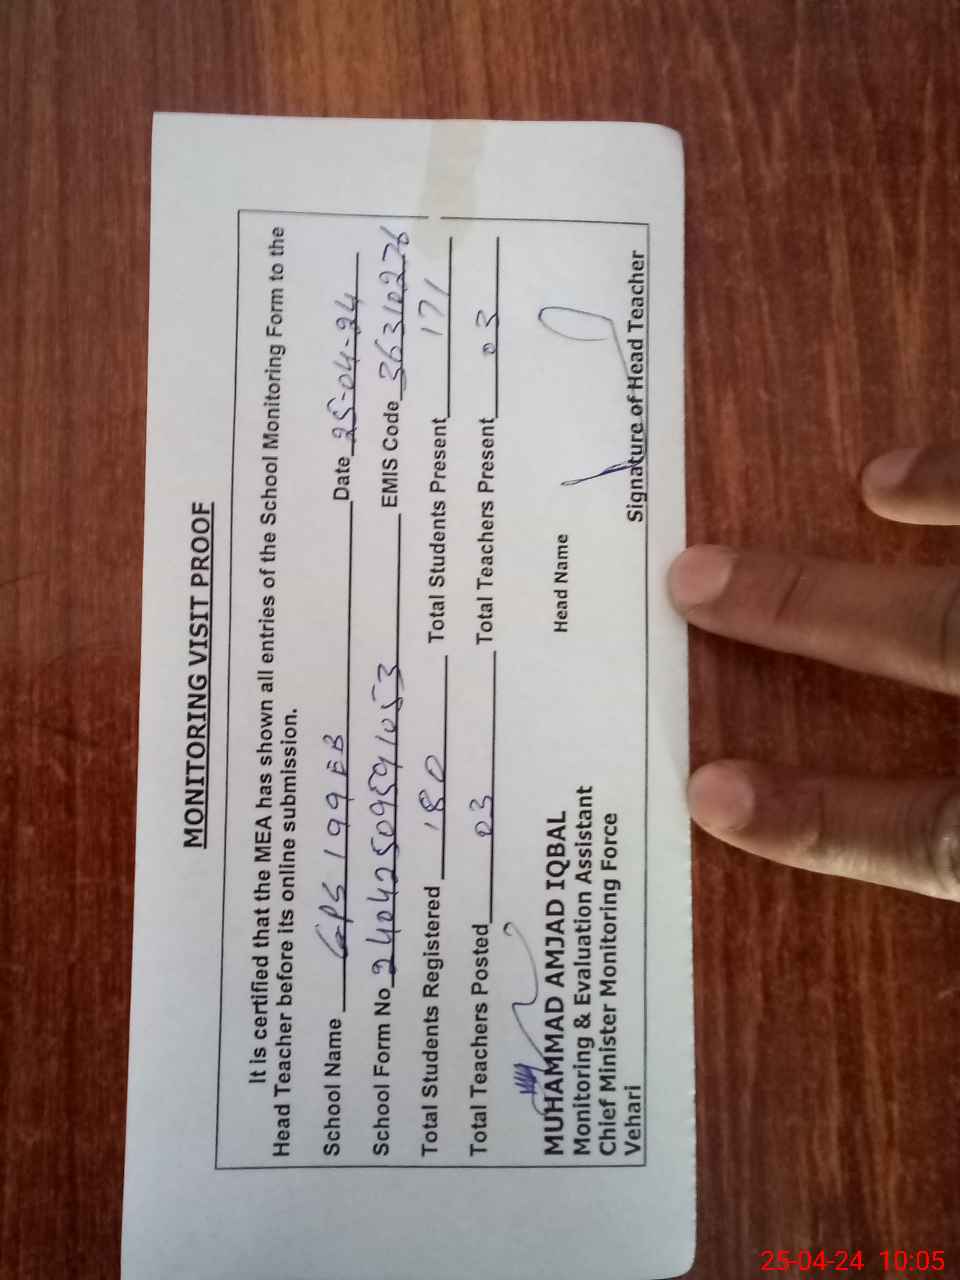 MONITORING VISIT PROOF
It is certified that the MEA has shown all entries of the School Monitoring Form to the
Head Teacher before its online submission.
School Name GPS 199 EB Date 25-04-24
School Form No 24042509591053 EMIS Code 36310276
Total Students Registered 180 Total Students Present 171
Total Teachers Posted 03 Total Teachers Present 03
MUHAMMAD AMJAD IQBAL Head Name
Monitoring & Evaluation Assistant
Chief Minister Monitoring Force
Vehari Signature of Head Teacher
25-04-24 10:05